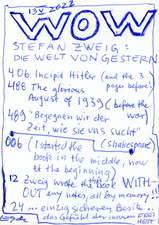 13 V 2022
WOW
STEFAN ZWEIG:
DIE WELT VON GESTERN
406 Incipit Hitler (and the 3 pages before)
488 The glorious
August of 1939 (before the war)
489 "Begegnen wir der
Zeit, wie sie uns sucht"
(Shakespeare)
006 (I started the
book in the middle, now
at the beginning)
12 Zweig wrote the book WITH-
OUT any notes, all by memory!!
24 ... einzig sicheren Besitz –
das Gefühl der inneren FREI
HEIT!